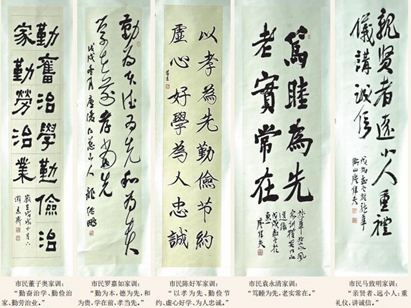 勤奮治學勤儉治
家勤勞治業
勤為本德為先和為貴
學在前孝當先
以孝為先勤儉节約
虛心好學為人忠誠
篤睦為先
老實常在
親賢者遠小人重禮
儀講誠信
市民董子奥家训：
“勤奋治学、勤俭治
家、勤劳治业。”
市民罗慕如家训：
“勤为本、德为先、和
为贵、学在前、孝当先。”
市民陈好军家训：
“以孝为先、勤俭节
约、虚心好学、为人忠诚。”
市民袁永清家训：
“笃睦为先，老实常在。”
市民马致明家训：
“亲贤者、远小人；重
礼仪、讲诚信。”